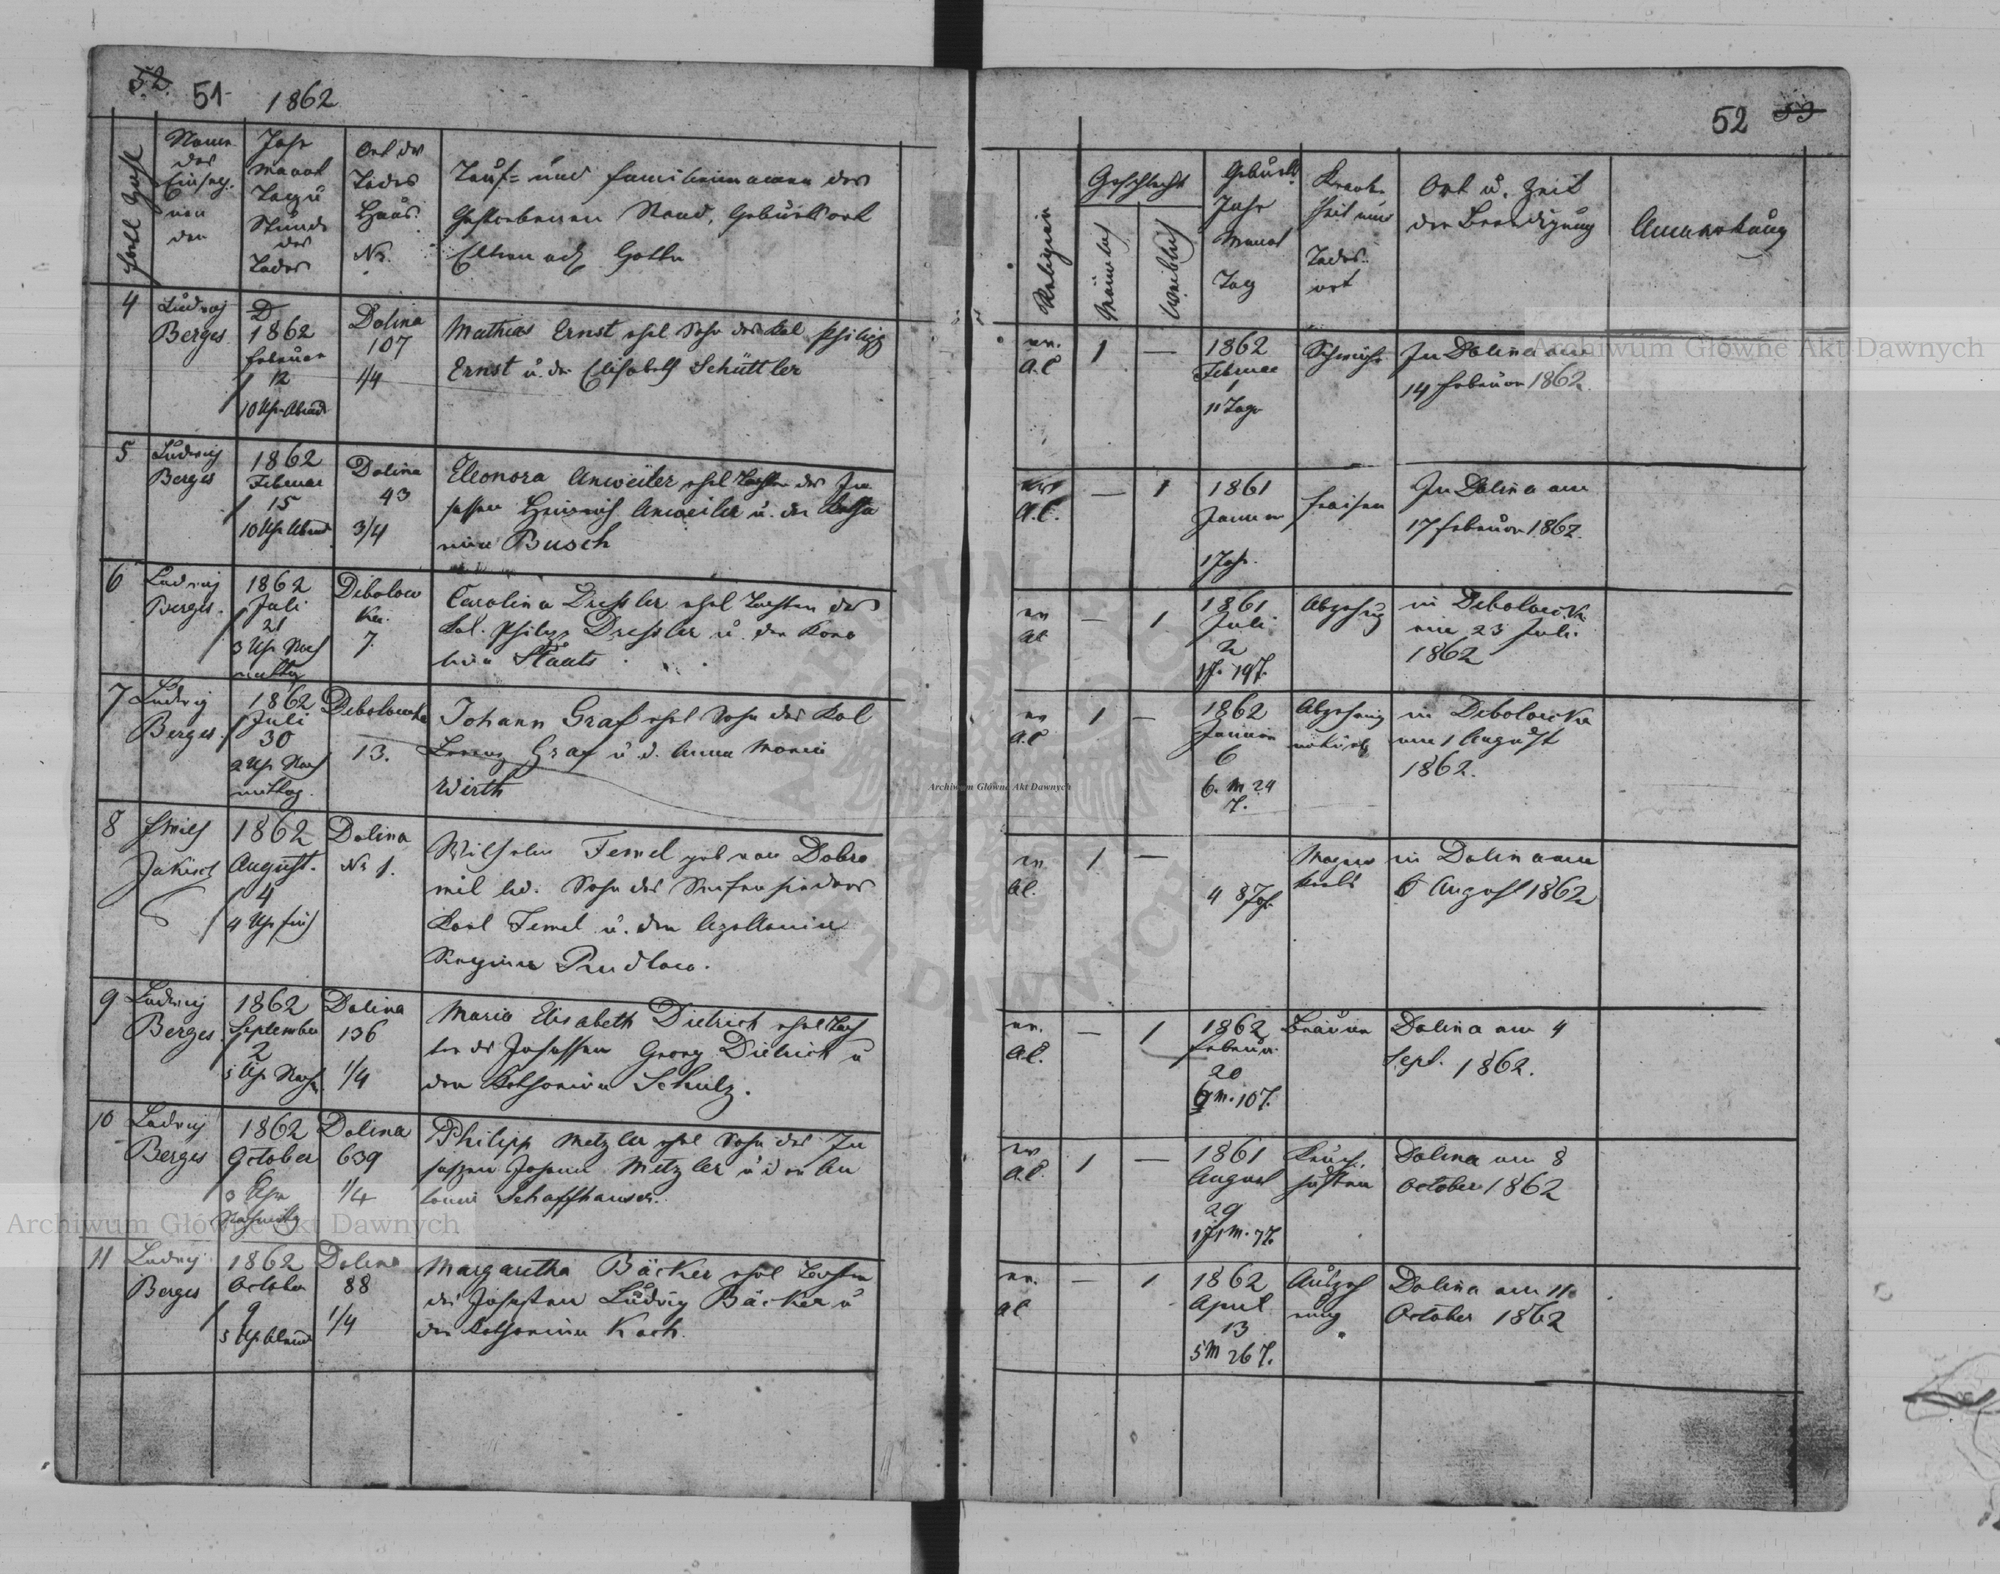 52 51 1862
Name
des
Einseg-
nen
den
Jahr
Monat
Tag u
Stunde
des
Todes
Ort des
Todes
Haus
No.
Tauf- und Familiennamen des
Gestorbenen Stand, Geburtsort
Eltern
4
Ludwig
Berges
1862
Februar
12
10 Uhr Abend
Dolina
107
1/4
Mathias Ernst ehel Sohn des Kol Philipp
Ernst u. der Elisabeth Schüttler
5
Ludwig
Berges
1862
Februar
15
10 Uhr Abend
Dolina
43
3/4
Eleonora Anweiler ehel Tochter des In
sassen Heinrich Anweiler u. der Katha
rina Busch
6
Ludwig
Berges.
1862
Juli
21
3 Uhr Nach
mittag
Debolow
ka.
7.
Carolina Dressler ehel Tochter des
Kol. Philipp Dressler u. der
Staats
7
Ludwig
Berges.
1862
Juli
30
2 Uhr Nach
mittag.
Debolowka
13.
Johann Graf ehel Sohn des Kol
Lorenz Graf u d. Anna Maria
Wirth
8
1862
August.
4
4 Uhr früh
Dolina
No 1.
Wilhelm Temel geb von Dobro
mil led. Sohn des Seifensieders
Karl Temel u. der Apollonia
Regina
9
Ludwig
Berges
1862
September
2
5 Uhr Nachm
Dolina
136
1/4
Maria Elisabeth Dietrich ehel Toch
ter des Insassen Georg Dietrich u
der Katharina Schulz.
10
Ludwig
Berges
1862
October
6
3 Uhr
Nachmittag
Dolina
639
1/4
Philipp Metzler ehel Sohn des In
sassen Johann Metzler u der
Schaffhauser.
11
Ludwig
Berges
1862
October
9
5 Uhr Abend
Dolina
88
1/4
Margaretha Bäcker ehel Tochter
des Insassen Ludwig Bäcker u
der Katharina Koch.
52 53
Religion
Geschlecht
Männlich
Weiblich
Geburts
Jahr
Monat
Tag
Krank-
heit und
Todes-
art
Ort u. Zeit
der Beerdigung
Anmerkung
ev.
A.C
1
—
1862
Februar
1
11 Tage
In Dolina am
14 Februar 1862.
A.C.
—
1
1861
Januar
1 Jahr.
Fraisen
In Dolina am
17 Februar 1862.
ev
AC
—
1
1861
Juli
2
1 J. 19 T.
Abzehrung
in Debolowka
am 23 Juli
1862
ev
A.C
1
—
1862
Januar
6
6. M 24
T.
in Debolowka
am 1 August
1862.
ev
AC.
1
—
48 Jah.
Magen
krebs
in Dolina am
6 August 1862
ev.
AC.
—
1
1862
Februar
20
6 M. 10 T.
Bräune
Dolina am 4
Sept. 1862.
ev
A.C.
1
—
1861
August
29
1 J 1 M. 7 T.
Keuch-
husten
Dolina am 8
October 1862
ev.
AC
—
1
1862
April
13
5 M 26 T.
Auszeh
rung
Dolina am 11
October 1862
Archiwum Główne Akt Dawnych
Archiwum Główne Akt Dawnych
Archiwum Główne Akt Dawnych